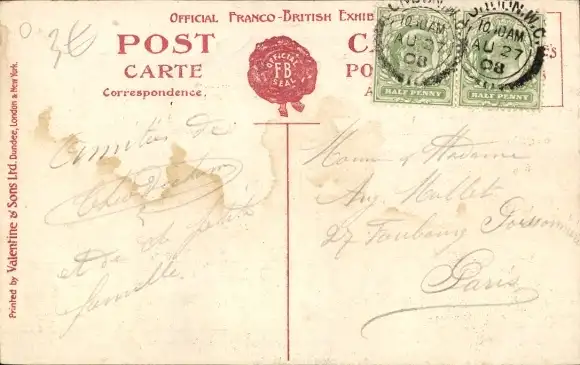 3€
OFFICIAL FRANCO-BRITISH
POST
CARTE
Correspondence.
OFFICIAL
F.B
SEAL
LONDON.W.C
10.10AM
AU 27
08
LONDON.W.C
10.10AM
AU 27
08
HALF PENNY
HALF PENNY
Printed by Valentine & Sons Ltd. Dundee, London & New York.
Amitiés de
et de la petite
famille
Monsieur & Madame
27 Faubourg Poissonnière
Paris